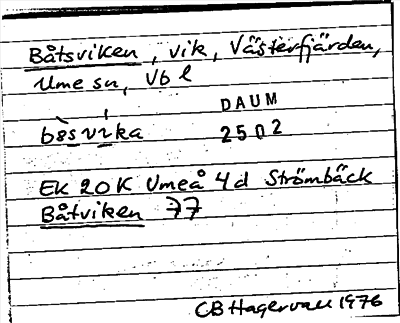 Båtsviken, vik, Västerfjärden,
Ume sn, Vb l
DAUM
bòsvíka 2502
EK 20K Umeå 4d Strömbäck
Båtviken 77
CB Hagervall 1976